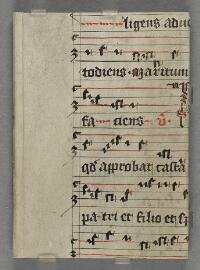 ligens adue
todiens maritum
fa ciens v
qd approbat casta
pa tri et filio et sp